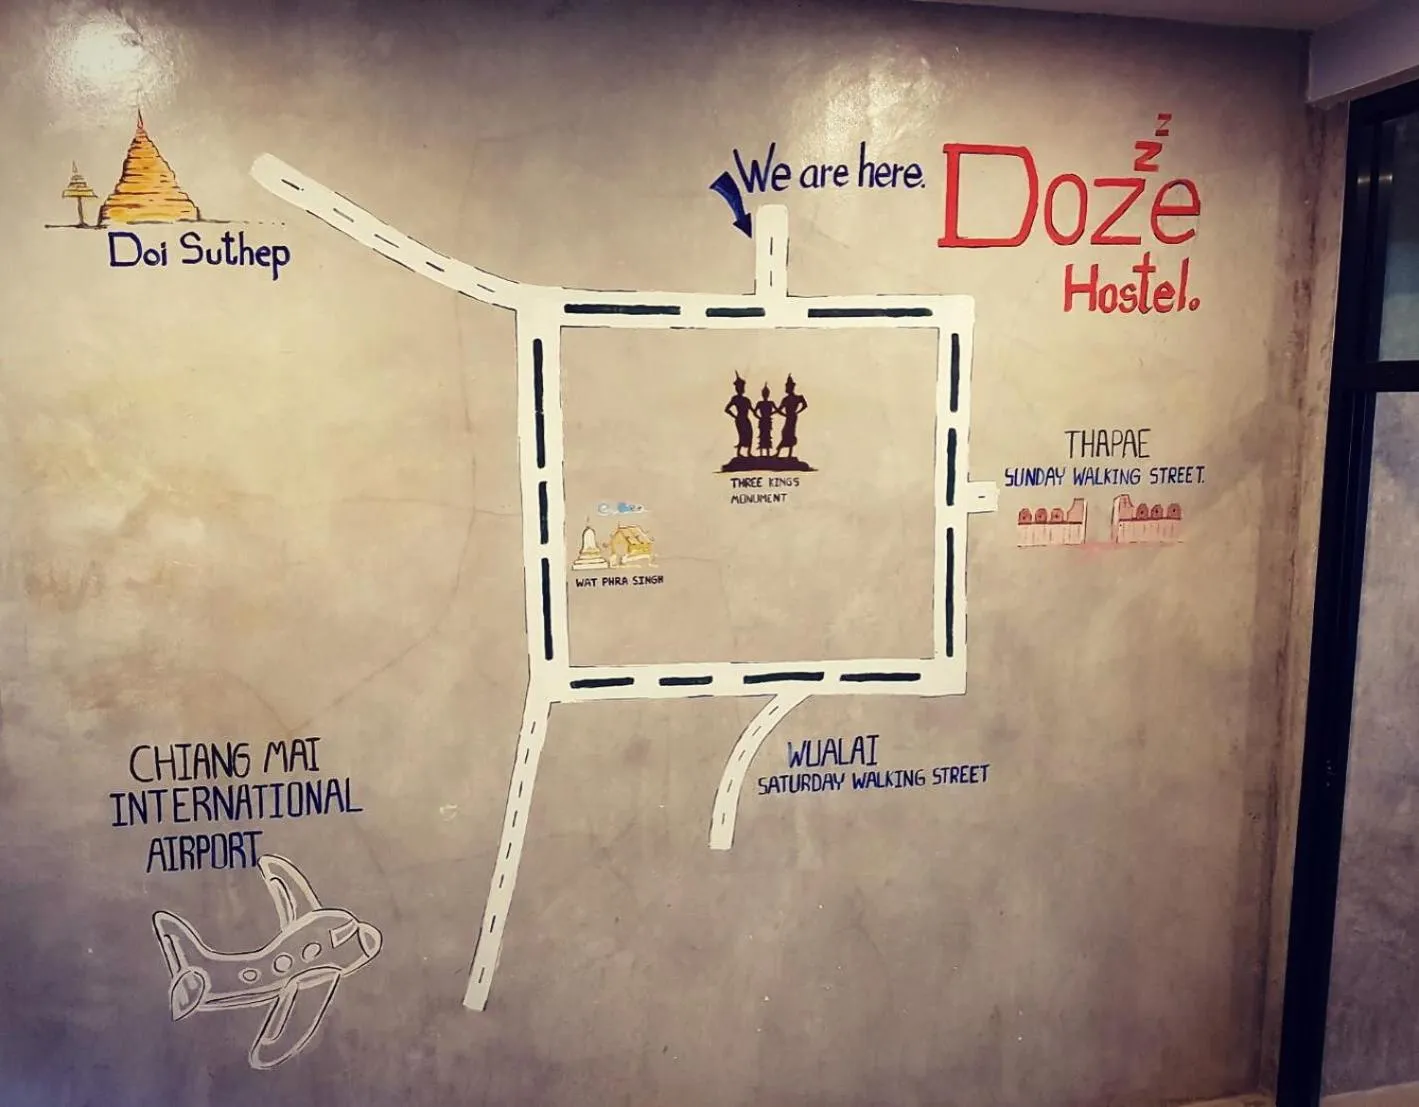 We are here.
Doze
zz
Hostel.
Doi Suthep
THAPAE
SUNDAY WALKING STREET.
THREE KINGS
MONUMENT
WAT PHRA SINGH
CHIANG MAI
INTERNATIONAL
AIRPORT
WUALAI
SATURDAY WALKING STREET